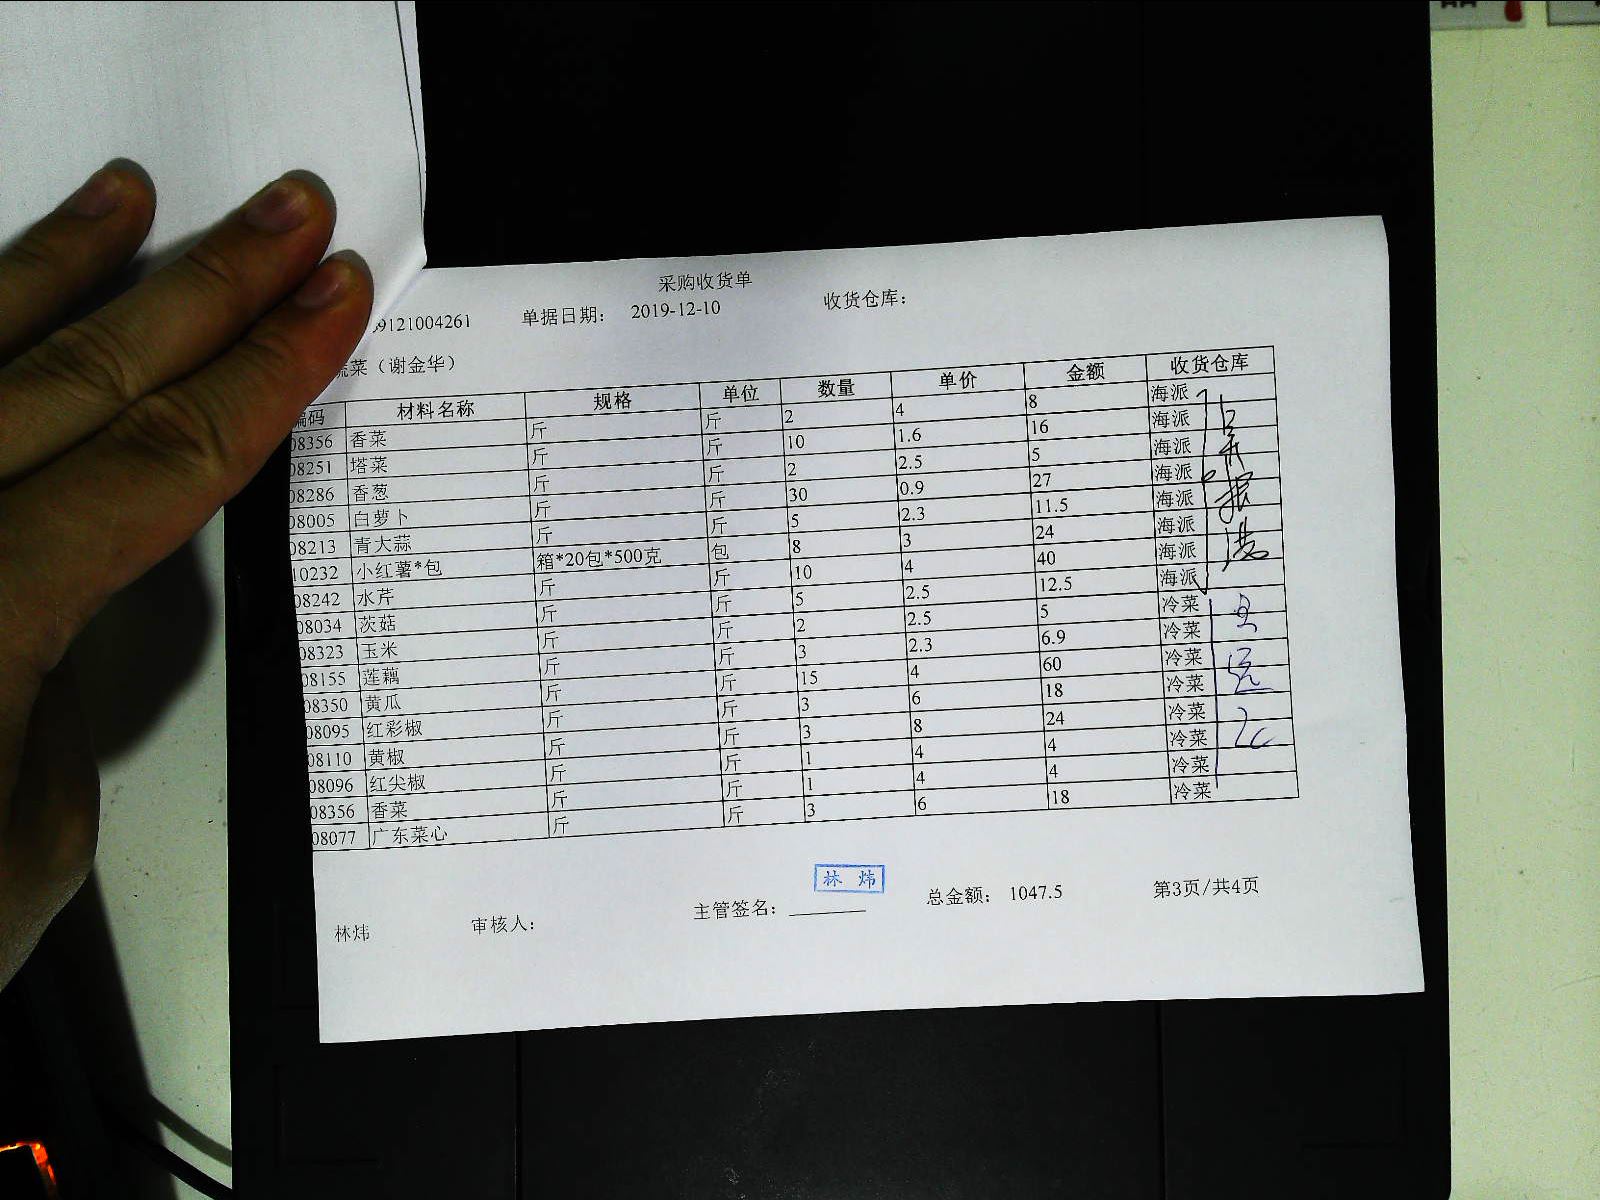 采购收货单
9121004261 单据日期： 2019-12-10 收货仓库：
蔬菜（谢金华）
编码 材料名称 规格 单位 数量 单价 金额 收货仓库
08356 香菜 斤 斤 2 4 8 海派
08251 塔菜 斤 斤 10 1.6 16 海派
08286 香葱 斤 斤 2 2.5 5 海派
08005 白萝卜 斤 斤 30 0.9 27 海派
08213 青大蒜 斤 斤 5 2.3 11.5 海派
10232 小红薯*包 箱*20包*500克 包 8 3 24 海派
08242 水芹 斤 斤 10 4 40 海派
08034 茨菇 斤 斤 5 2.5 12.5 海派
08323 玉米 斤 斤 2 2.5 5 冷菜
08155 莲藕 斤 斤 3 2.3 6.9 冷菜
08350 黄瓜 斤 斤 15 4 60 冷菜
08095 红彩椒 斤 斤 3 6 18 冷菜
08110 黄椒 斤 斤 3 8 24 冷菜
08096 红尖椒 斤 斤 1 4 4 冷菜
08356 香菜 斤 斤 1 4 4 冷菜
08077 广东菜心 斤 斤 3 6 18 冷菜
林炜
林炜 审核人： 主管签名： 总金额： 1047.5 第3页/共4页